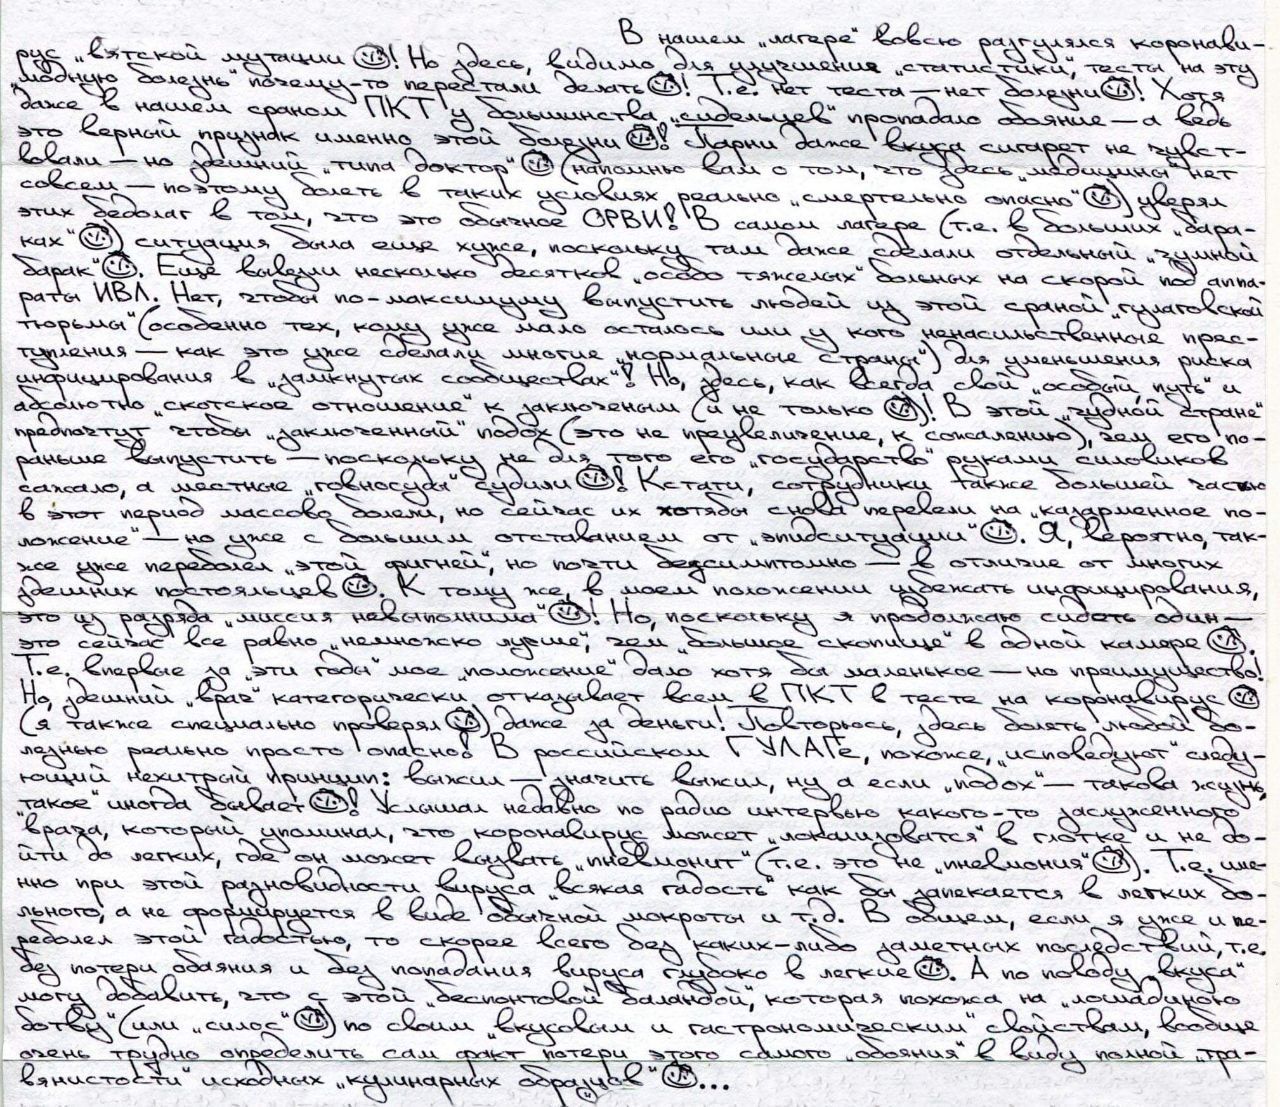 В нашем „лагере" вовсю разгулялся коронави-
рус „вятской мутации ☺! Но здесь, видимо для улучшения „статистики", тесты на эту
„модную болезнь" почему-то перестали делать ☺! Т.е. нет теста — нет болезни ☺! Хотя
даже в нашем сраном ПКТ у большинства „сидельцев" пропадало обояние — а ведь
это верный признак именно этой болезни ☺! Парни даже вкуса сигарет не чувст-
вовали — но здешний „типа доктор" ☺ (напомню вам о том, что здесь „медицины" нет
совсем — поэтому болеть в таких условиях реально „смертельно опасно" ☺) уверял
этих бедолаг в том, что это обычное ОРВИ! В самом лагере (т.е. в больших „бара-
ках" ☺) ситуация была еще хуже, поскольку там даже сделали отдельный „чумной
барак" ☺. Еще вывезли несколько десятков „особо тяжелых" больных на скорой под аппа-
раты ИВЛ. Нет, чтобы по-максимуму выпустить людей из этой сраной „гулаговской
тюрьмы" (особенно тех, кому уже мало осталось или у кого ненасильственные прес-
тупления — как это уже сделали многие „нормальные страны") для уменьшения риска
инфицирования в „замкнутых сообществах"! Но, здесь, как всегда свой „особый путь" и
абсолютно „скотское отношение" к заключеным (и не только ☺)! В этой „чудной стране"
предпочтут чтобы „заключенный" подох (это не преувеличение, к сожалению), чем его по-
раньше выпустить — поскольку не для того его „государство" руками силовиков
сажало, а местные „говносуды" судили ☺! Кстати, сотрудники также большей частью
в этот период массово болели, но сейчас их хотябы снова перевели на „казарменное по-
ложение" — но уже с большим отставанием от „эпидситуации" ☺. Я, вероятно, так-
же уже переболел „этой фигней", но почти бессимптомно — в отличие от многих
здешних постояльцев ☺. К тому же, в моем положении избежать инфицирования,
это из разряда „миссия невыполнима" ☺! Но, поскольку я продолжаю сидеть один —
это сейчас все равно „немножко лучше", чем „большое скопище" в одной камере ☺.
Т.е. впервые за „эти годы" мое „положение" дало хотя бы маленькое — но преимущество!
Но, здешний „врач" категорически отказывает всем в ПКТ в тесте на коронавирус ☺
(я также специально проверял ☺) даже за деньги! Повторюсь, здесь болеть любой бо-
лезнью реально просто опасно! В российском ГУЛАГе, похоже, „исповедуют" следу-
ющий нехитрый принцип: выжил — значить выжил, ну а если „подох" — такова жизнь,
такое" иногда бывает ☺! Услышал недавно по радио интервью какого-то заслуженного
врача, который упоминал, что коронавирус может „локализоватся" в глотке и не до-
йти до легких, где он может вызвать „пневмонит" (т.е. это не „пневмония" ☺). Т.е. име-
нно при этой разновидности вируса „всякая гадость" как бы запекается в легких бо-
льного, а не формируется в виде обычной мокроты и т.д. В общем, если я уже и пе-
реболел этой гадостью, то скорее всего без каких-либо заметных последствий, т.е.
без потери обаяния и без попадания вируса глубоко в легкие ☺. А по поводу „вкуса"
могу добавить, что с этой „беспонтовой баландой", которая похожа на „лошадиною
ботву" (или „силос" ☺) по своим „вкусовым и гастрономическим" свойствам, вообще
очень трудно определить сам факт потери этого самого „обояния" в виду полной „тра-
вянистости" исходных „кулинарных образцов" ☺...